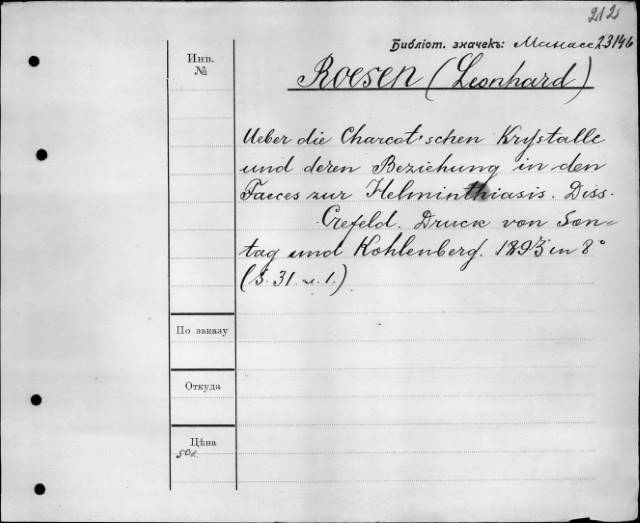 212
Библіот. значекъ: Манасс 23146
Инв. №
Roesen (Leonhard)
Ueber die Charcot'schen Krystalle
und deren Beziehung in den
Faeces zur Helminthiasis. Diss.
Crefeld. Druck von Son-
tag und Kohlenberg. 1893 in 8°
(S. 31. u. 1.)
По заказу
Откуда
Цѣна
50к.